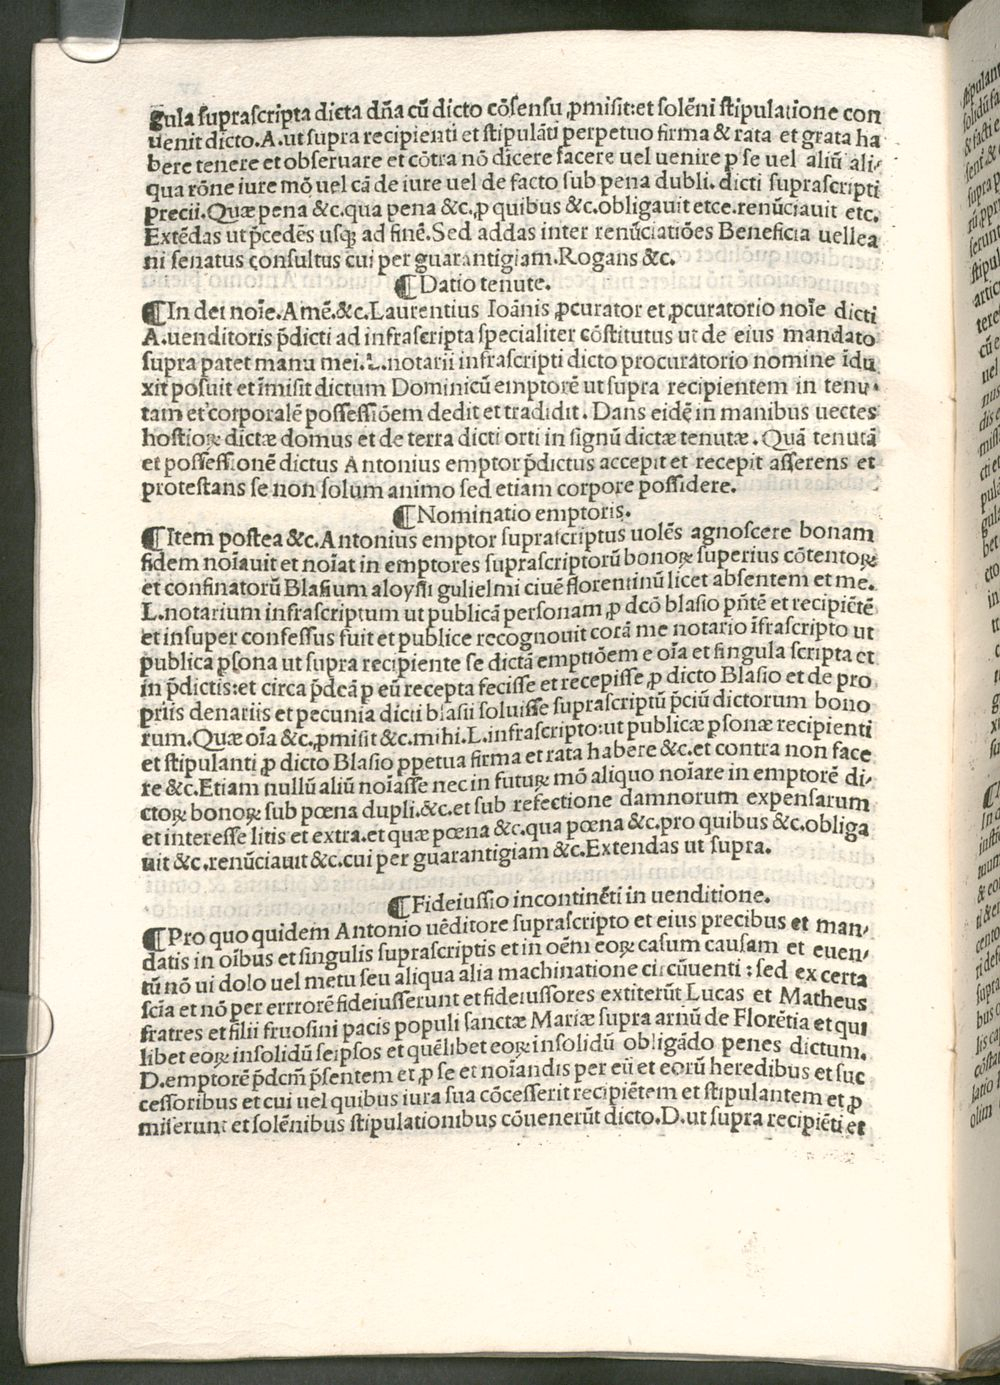 gula ſupraſcripta dicta dña cū dicto cõſenſu ꝓmiſit:et ſolēni ſtipulatione con
uenit dicto.A.ut supra recipienti et ſtipulāti perpetuo firma & rata et grata ha
bere tenere et obſeruare et cõtra nõ dicere facere uel uenire p ſe uel aliū ali/
qua rõne iure mõ uel cā de iure uel de facto ſub pena dubli. dicti ſupraſcripti
precii.Quæ pena &c.qua pena &c.ꝓ quibus &c.obligauit etce.renūciauit etc.
Extēdas ut p̄cedēs uſqꝫ ad finē.Sed addas inter renūciatiões Beneficia uellea
ni ſenatus conſultus cui per guarantigiam.Rogans &c.
¶Datio tenute.
¶In dei noīe.Amē.&c.Laurentius Ioānis ꝓcurator et ꝓcuratorio noīe dicti
A.uenditoris p̄dicti ad infraſcripta ſpecialiter cõſtitutus ut de eius mandato
ſupra patet manu mei.L.notarii infraſcripti dicto procuratorio nomine īdu
xit poſuit et īmiſit dictum Dominicū emptorē ut ſupra recipientem in tenu
tam et corporalē poſſeſſiõem dedit et tradidit. Dans eidē in manibus uectes
hoſtioꝝ dictæ domus et de terra dicti orti in ſignū dictæ tenutæ. Quā tenutā
et poſſeſſionē dictus Antonius emptor p̄dictus accepit et recepit aſſerens et
proteſtans ſe non ſolum animo ſed etiam corpore poſſidere.
¶Nominatio emptoris.
¶Item poſtea &c.Antonius emptor ſupraſcriptus uolēs agnoſcere bonam
fidem noīauit et noīat in emptores ſupraſcriptorū bonoꝝ ſuperius cõtentoꝝ
et confinatorū Blaſium aloyſii gulielmi ciuē florentinū licet abſentem et me.
L.notarium infraſcriptum ut publicā perſonam ꝓ dcõ blaſio pñtē et recipiētē
et inſuper confeſſus fuit et publice recognouit corā me notario īfraſcripto ut
publica pſona ut ſupra recipiente ſe dictā emptiõem e oīa et ſingula ſcripta et
in p̄dictis:et circa p̄dcā p eū recepta feciſſe et recepiſſe ꝓ dicto Blaſio et de pro
priis denariis et pecunia dicti blaſii ſoluiſſe ſupraſcriptū p̄ciū dictorum bono
rum.Quæ oīa &c.ꝓmiſit &c.mihi.L.infraſcripto:ut publicæ pſonæ recipienti
et ſtipulanti ꝓ dicto Blaſio ppetua firma et rata habere &c.et contra non face
re &c.Etiam nullū aliū noīaſſe nec in futuꝝ mõ aliquo noīare in emptorē di/
ctoꝝ bonoꝝ ſub pœna dupli.&c.et ſub refectione damnorum expenſarum
et intereſſe litis et extra.et quæ pœna &c.qua pœna &c.pro quibus &c.obliga
uit &c.renūciauit &c.cui per guarantigiam &c.Extendas ut ſupra.
¶Fideiuſſio incontinēti in uenditione.
¶Pro quo quidem Antonio uēditore ſupraſcripto et eius precibus et man/
datis in oībus et ſingulis ſupraſcriptis et in oēm eoꝝ caſum cauſam et euen/
tū nõ ui dolo uel metu ſeu aliqua alia machinatione circūuenti : ſed ex certa
ſcīa et nõ per errrorē fideiuſſerunt et fideiuſſores extiterūt Lucas et Matheus
fratres et filii fruoſini pacis populi ſanctæ Mariæ ſupra arnū de Florētia et qui
libet eoꝝ inſolidū ſeipſos et quēlibet eoꝝ inſolidū obligādo penes dictum.
D.emptorē p̄dcm̄ p̄ſentem et ꝓ ſe et noīandis per eū et eorū heredibus et ſuc
ceſſoribus et cui uel quibus iura ſua cõceſſerit recipiētem et ſtipulantem et ꝓ
miſerunt et ſolēnibus ſtipulationibus cõuenerūt dicto.D.ut ſupra recipiēti et